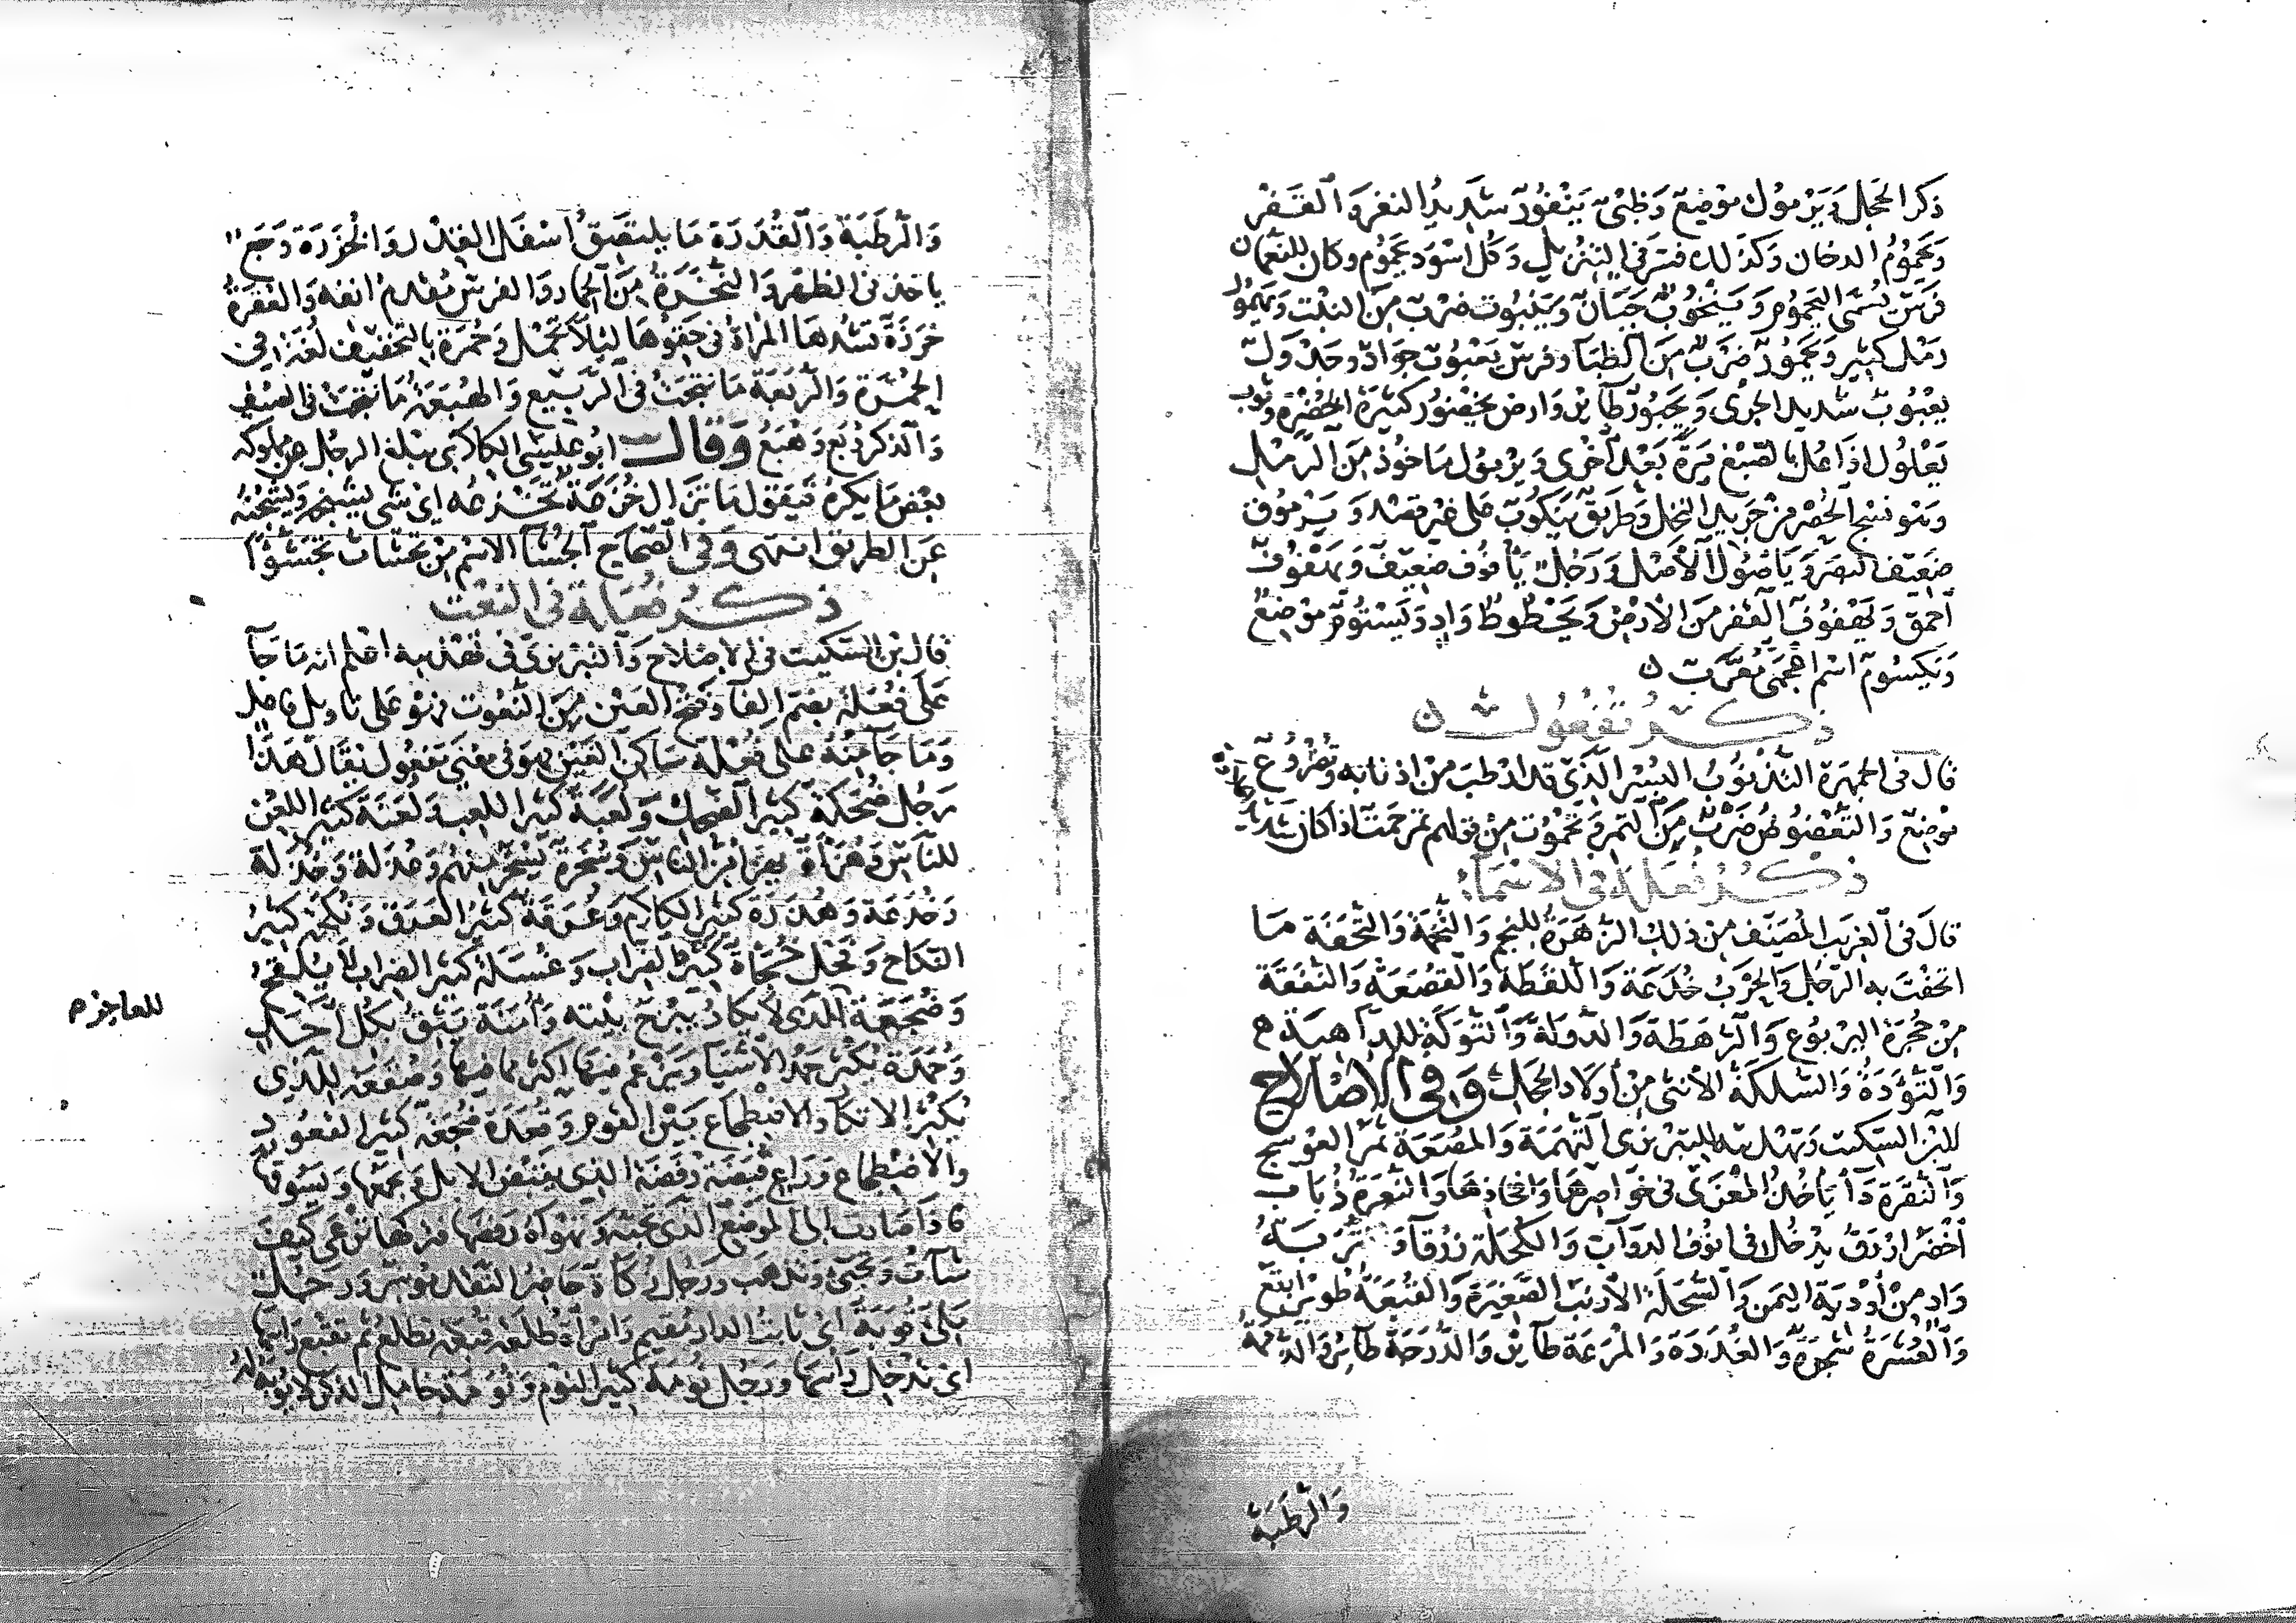 ذكر الحجل ويرموك موضع وظبي ينفور شديد النفر والقفر
ويحموم الدخان وكذلك فسر في التنزيل وكل اسود يحموم وكان للنعمان
فرس تسمى اليحموم وينخوب جبان وينبوت ضرب من النبت ويهمور
رمل كثير ويحمور ضرب من الظباء وفرس يعبوب جواد وجدول
يعبوب شديد الجري ويحبور طائر وارض يخضور كثيرة الخضرة وثوب
يعلول اذا عل بالصبغ مرة بعد اخرى ويرمول ماخوذ من الرمل
وهو نسج الحصر من جريد النخل وطريق ينكوب على غير قصد ويرموق
ضعيف البصر وياصول الاصل ورجل يافوف ضعيف ويهفوف
احمق ويهفوف القفر من الارض ويحطوط واد ويستوم موضع
ويكسوم اسم اعجمي معرب
ذكر تفعول
قال في الجمهرة التذنوب البسر الذي قد ارطب من اذنابه وتضروع
موضع والتعضوض ضرب من التمر وتحموت من قولهم تمر حمت اذا كان شديد الحلاوة
ذكر فعلة في الاسماء
قال في الغريب المصنف من ذلك الزهرة للنجم والتخمة والتحفة ما
اتحفت به الرجل والحرب خدعة واللقطة والقصعة والنفقة
من جحرة اليربوع والرهطة والدولة والتولة للداهية
والتؤدة والسلكة الانثى من اولاد الحجل وفي الاصلاح
لابن السكيت وتهذيبه للتبريزي التهمة والمصعة ثمر العوسج
والنقرة داء ياخذ المعزى في خواصرها وافخاذها والنعرة ذباب
اخضر ازرق يدخل في انوف الدواب والكحلة زرقاء وتربة
واد من اودية اليمن والسحلة الارنب الصغيرة والقبعة طوير ابقع
والعشرة شجرة والغددة والمرعة طائر والدرجة طائر
والرطبة
والرطبة والقددرة ما يلتصق اسفل القدر والخزرة وجع
ياخذ في الظهر والنخرة من الحمار والفرس مقدم انفه والعقرة
خرزة تشدها المراة في حقوها لئلا تحمل وحمرة بالتخفيف لغة في
الحمرة والربعة ما نتجت في الربيع والهبعة ما نتجت في الصيف
والذكر ربع وهبع وقال ابو علي الكلابي يبلغ الرجل عن مملوكه
بعض ما يكره فيقول ما تزال خزعة تخزعه اي شي يسنحه ويسنحه
عن الطريق انتهى وفي الصحاح الجشا الاسم من تجشات تجشؤا
ذكر فعلة في النعت
قال بن السكيت في الاصلاح والتبريزي في تهذيبه اعلم انه ما جا
على فعلة بضم الفا وفتح العين من النعوت فهو على تاويل فاعل
وما جا منه على فعلة ساكن العين فهو في معنى مفعول يقال هذا
رجل ضحكة كثير الضحك ولعبة كثير اللعب ولعنة كثير اللعن
للناس وهزاة يهزا من الناس وسخرة يسخر منهم وعذلة وخذلة
وخدعة وهذرة كثير الكلام وعرقة كثير العرق ونكحة كثير
النكاح وفحل خجاة كثير الضراب وغسلة كثير الضراب لا يلقح
وضجعة للعاجز الذي لا يكاد يبرح بيته وامنة يثق بكل احد
وحمدة يكثر حمد الاشيا ويزعم فيها اكثر مما فيها وضجعة للذي
يكثر الاتكا والاضطجاع بين القوم وقعدة ضجعة كثير القعود
والاضطجاع وراع قبضة رفضة الذي يقبض الابل ويجمعها ويسوقها
فاذا صارت الى الموضع الذي تحبه وتهواه رفضها فتركها ترعى كيف
شات وتجيء وتذهب ورجل زكاة حاضر النقد موسر ورجل
اي ثابت الدار مقيم وامراة طلعة قبعة تطلع ثم تقبع راسها
اي تدخل راسها ورجل نومة كثير النوم ونومة خامل الذكر لا يؤبه له
للعاجز م